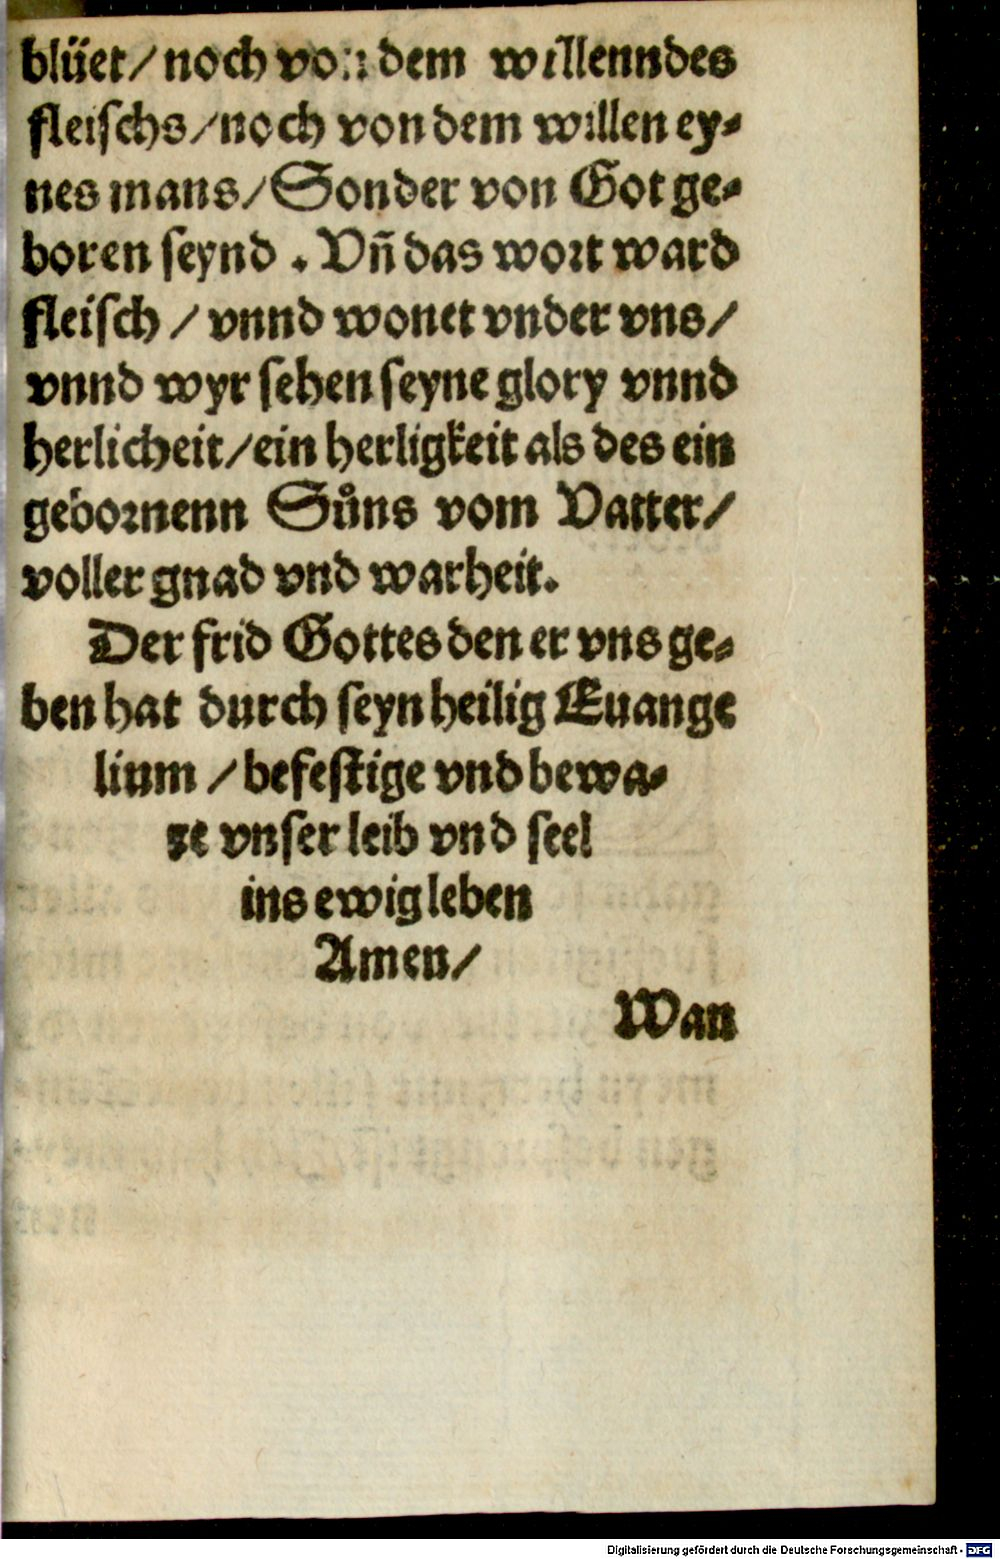 blüet/noch von dem willenn des
fleischs/noch von dem willen ey⸗
nes mans/Sonder von Got ge⸗
boren seynd. Vñ das wort ward
fleisch / vnnd wonet vnder vns/
vnnd wyr sehen seyne glory vnnd
herlicheit/ein herligkeit als des ein
gebornenn Sůns vom Vatter/
voller gnad vnd warheit.
Der frid Gottes den er vns ge⸗
ben hat durch seyn heilig Euange
lium / befestige vnd bewa⸗
re vnser leib vnd seel
ins ewig leben
Amen/
Wan
Digitalisierung gefördert durch die Deutsche Forschungsgemeinschaft - DFG